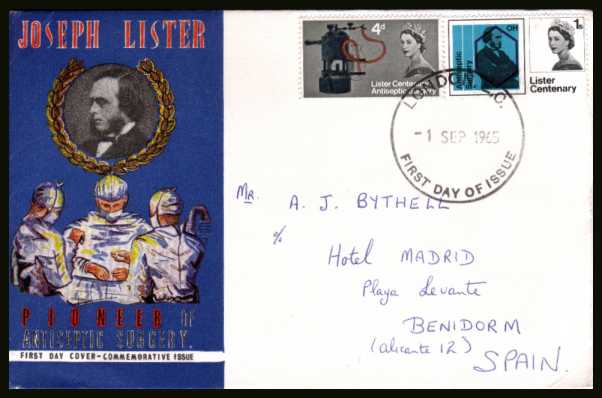 JOSEPH LISTER
4d
Lister Centenary
Antiseptic Surgery
Antiseptic
Surgery
OH
1s
Lister
Centenary
LONDON E.C.
-1 SEP 1965
FIRST DAY OF ISSUE
Mr. A. J. BYTHELL
c/o
Hotel MADRID
Playa Levante
BENIDORM
(alicante 12)
SPAIN.
PIONEER OF
ANTISEPTIC SURGERY.
FIRST DAY COVER-COMMEMORATIVE ISSUE